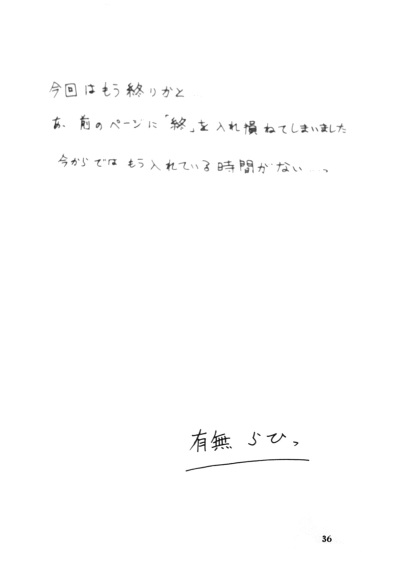 今回はもう終りかと
あ、前のページに「終」を入れ損ねてしまいました
今からではもう入れている時間がない…っ
有無らひっ
36